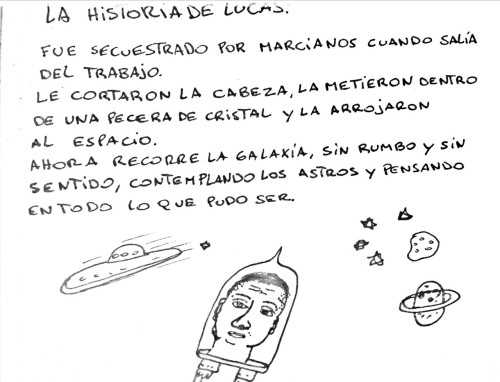 LA HISTORIA DE LUCAS.
FUE SECUESTRADO POR MARCIANOS CUANDO SALÍA
DEL TRABAJO.
LE CORTARON LA CABEZA, LA METIERON DENTRO
DE UNA PECERA DE CRISTAL Y LA ARROJARON
AL ESPACIO.
AHORA RECORRE LA GALAXIA, SIN RUMBO Y SIN
SENTIDO, CONTEMPLANDO LOS ASTROS Y PENSANDO
EN TODO LO QUE PUDO SER.